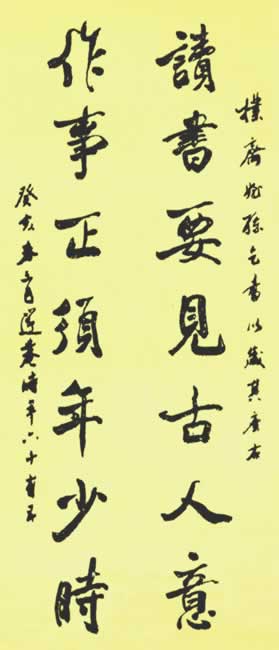 樸齋姪孫乞書以箴其座右
讀書要見古人意
作事正須年少時
癸亥春六十有五